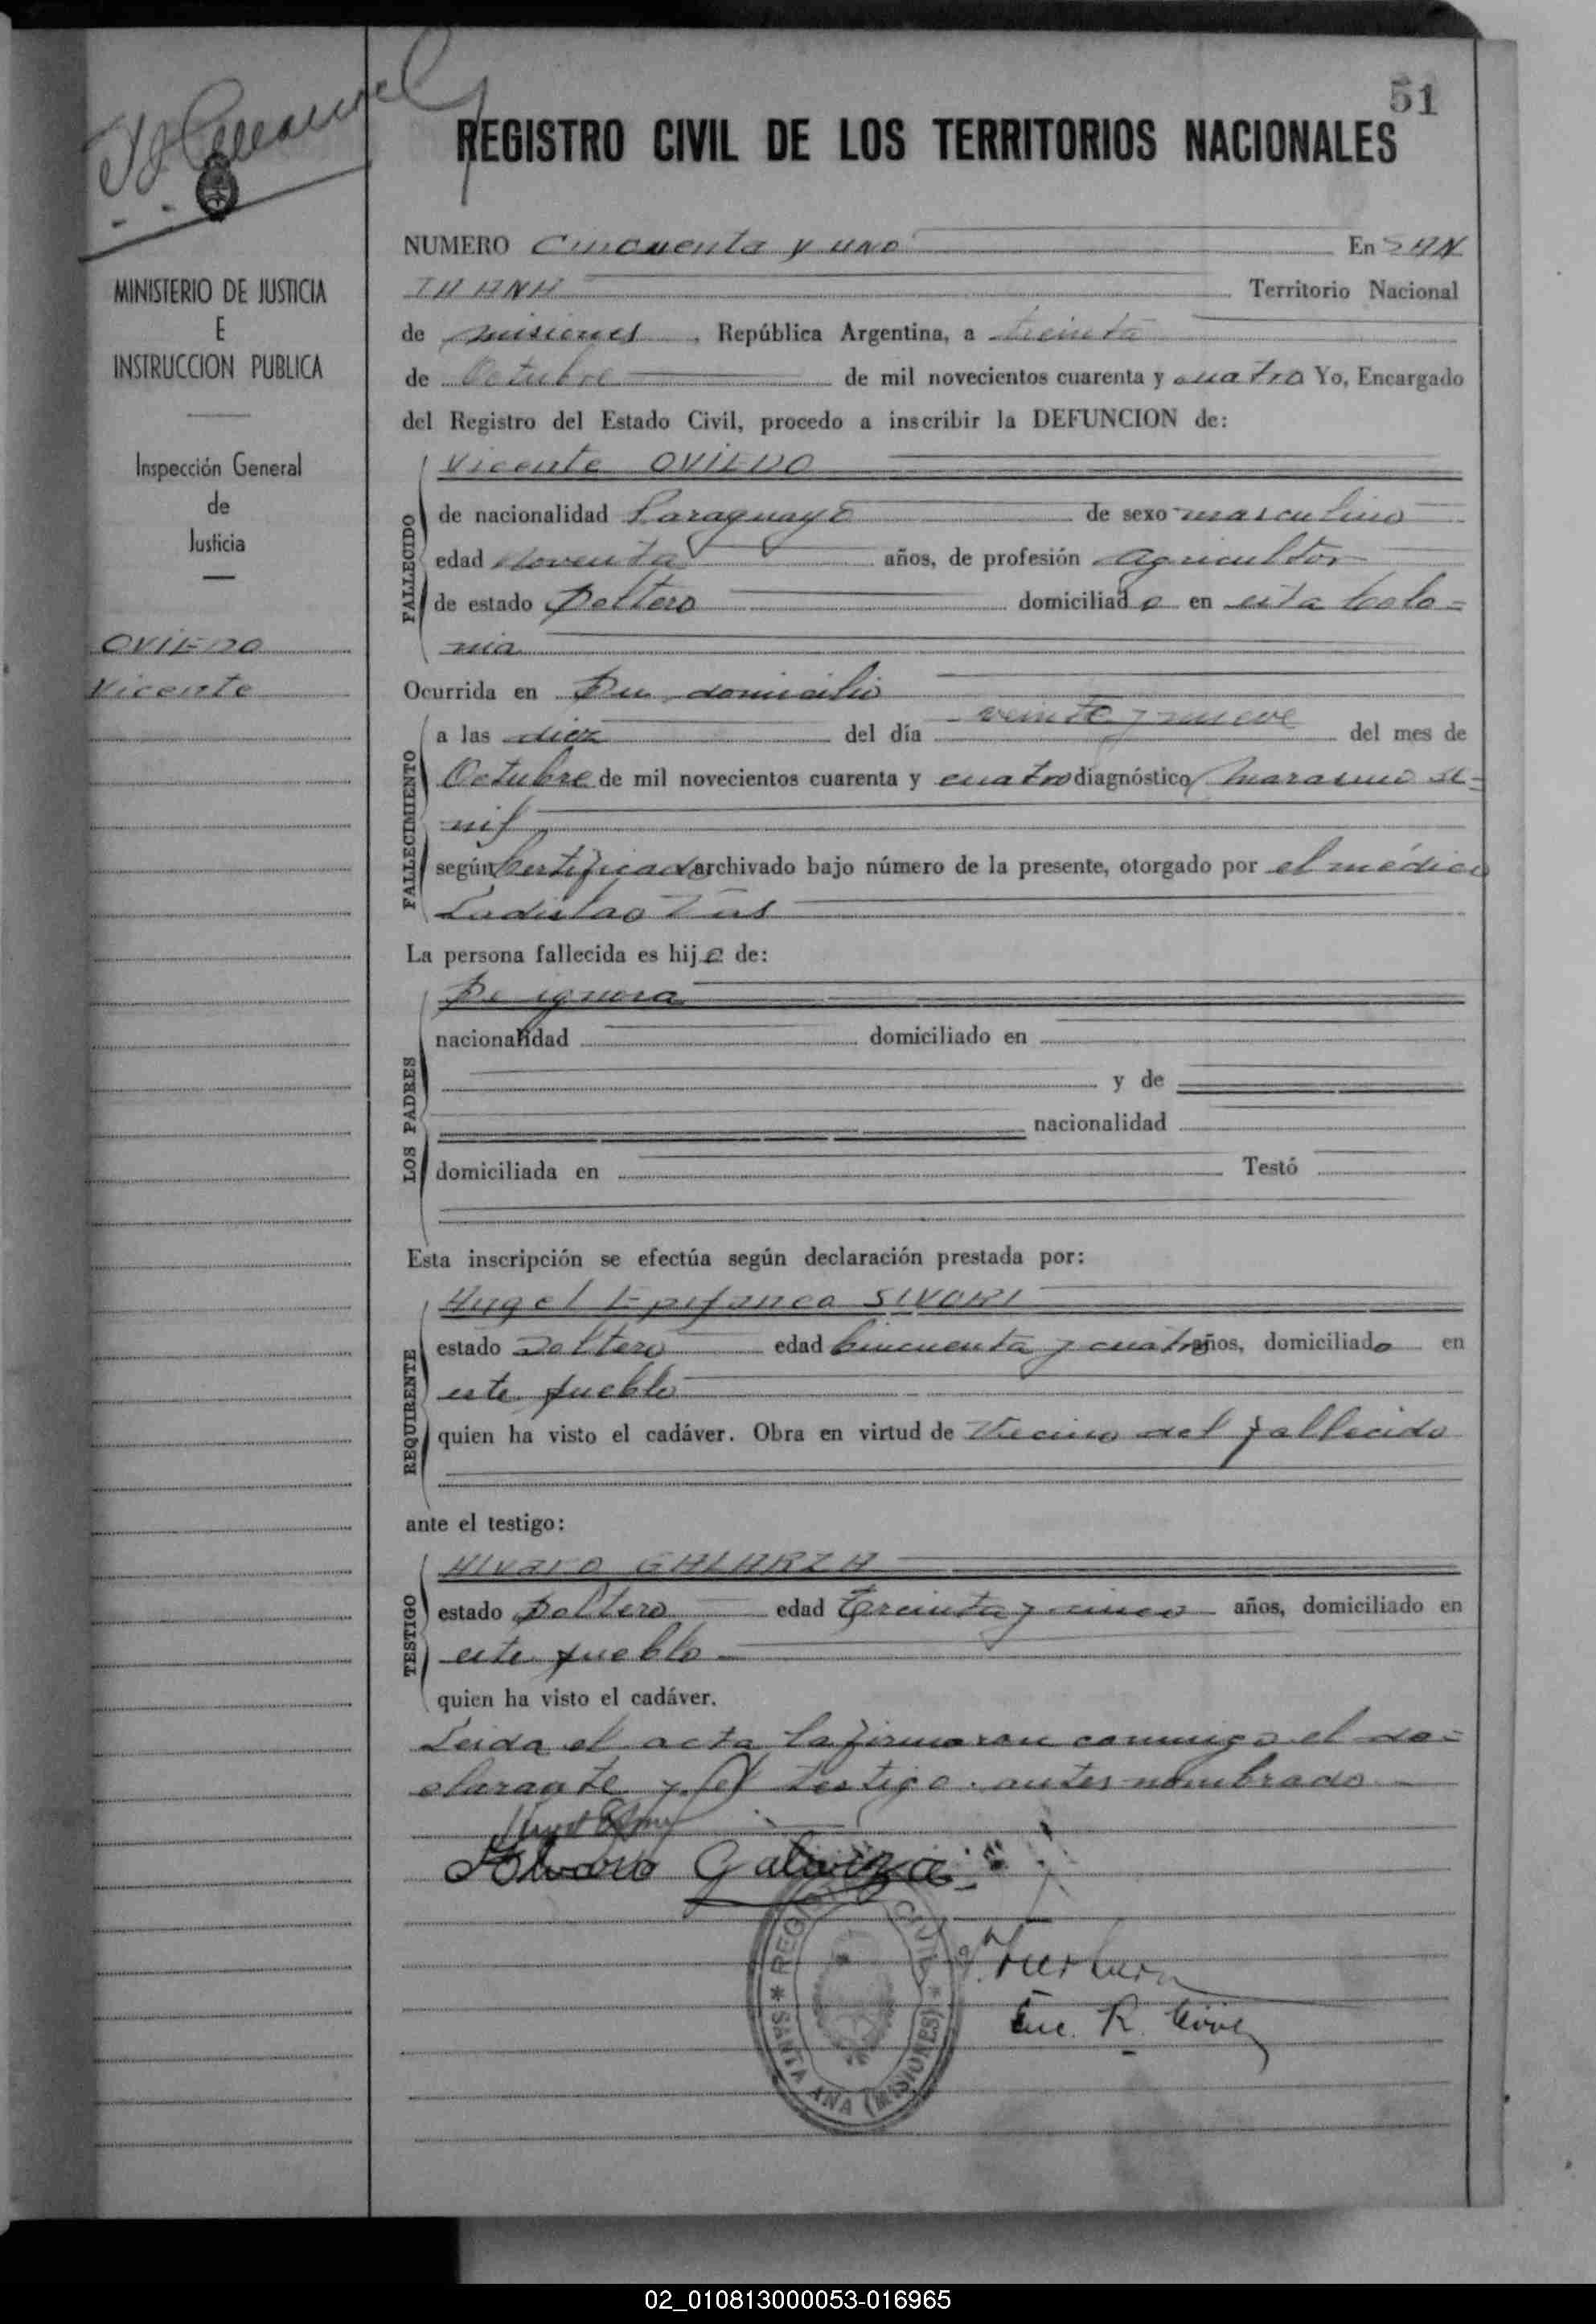 51
REGISTRO CIVIL DE LOS TERRITORIOS NACIONALES
MINISTERIO DE JUSTICIA
E
INSTRUCCION PUBLICA
Inspección General
de
Justicia
OVIEDO
Vicente
NUMERO Cincuenta y uno En SAN
TA ANA Territorio Nacional
de Misiones, República Argentina, a treinta
de Octubre de mil novecientos cuarenta y cuatro Yo, Encargado
del Registro del Estado Civil, procedo a inscribir la DEFUNCION de:
FALLECIDO
Vicente OVIEDO
de nacionalidad Paraguayo de sexo masculino
edad Noventa años, de profesión Agricultor
de estado Soltero domiciliado en esta Colo=
nia
Ocurrida en Su domicilio
FALLECIMIENTO
a las diez del día veinte y nueve del mes de
Octubre de mil novecientos cuarenta y cuatro diagnóstico Marasmo se=
nil
según Certificado archivado bajo número de la presente, otorgado por el médico
Ladislao
La persona fallecida es hijo de:
LOS PADRES
Se ignora
nacionalidad domiciliado en
y de
nacionalidad
domiciliada en Testó
Esta inscripción se efectúa según declaración prestada por:
REQUIRENTE
Angel Epifaneo SIVORI
estado Soltero edad Cincuenta y cuatro años, domiciliado en
este pueblo
quien ha visto el cadáver. Obra en virtud de Vecino del fallecido
ante el testigo:
TESTIGO
Alvaro GALARZA
estado Soltero edad Treinta y cinco años, domiciliado en
este pueblo
quien ha visto el cadáver.
Leida el acta la firmaron conmigo el de=
clarante y el testigo antes nombrado
Alvaro Galarza
Enc. R. Civil
* REGISTRO CIVIL * SANTA ANA (MISIONES)
02_010813000053-016965